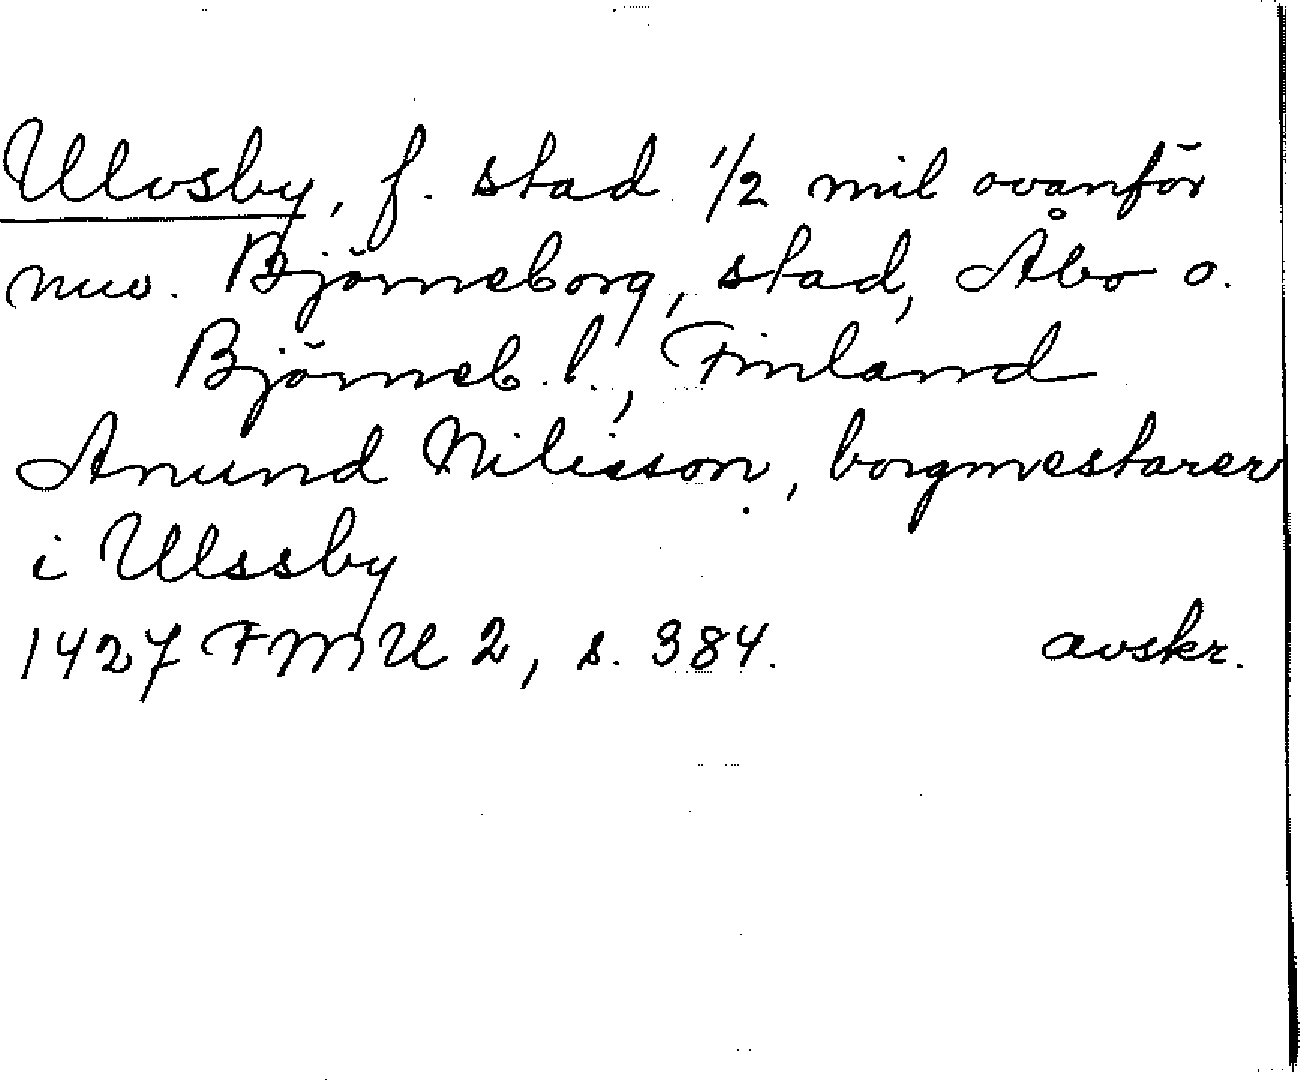 Ulvsby, f. stad 1/2 mil ovanför
nuv. Björneborg, stad, Åbo o.
Björneb. l., Finland
Anund Nilisson, borgmestarer
i Ulssby
1427 FMU 2, s. 384. avskr.